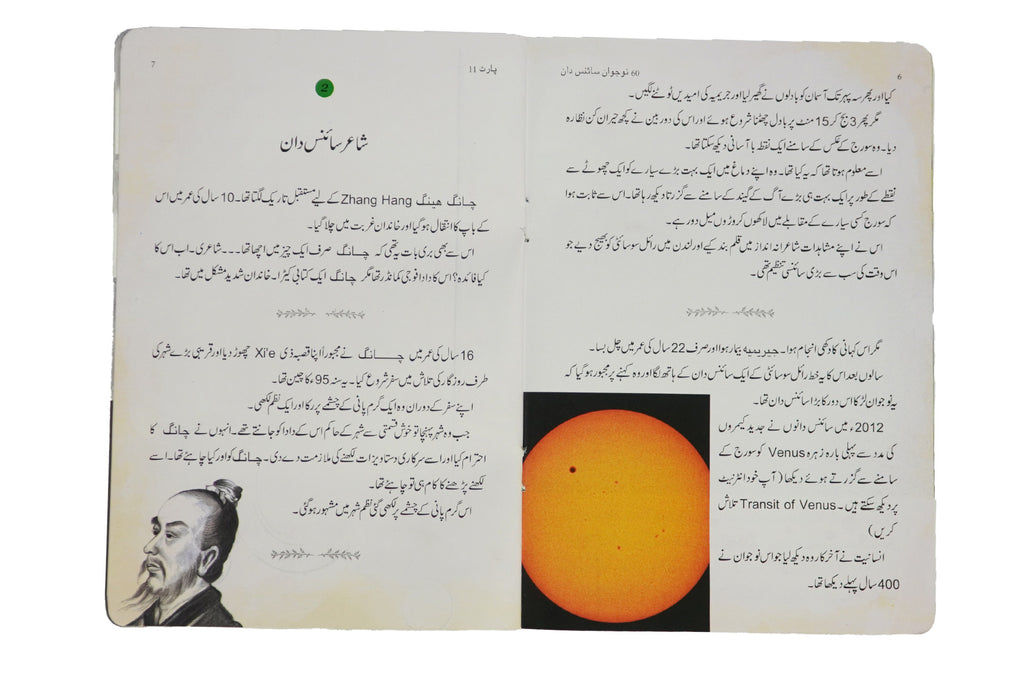 6
60 نوجوان سائنس دان
کیا اور پھر سہ پہر تک آسمان کو بادلوں نے گھیر لیا اور جریمیہ کی امیدیں ٹوٹنے لگیں۔
مگر پھر 3 بج کر 15 منٹ پر بادل چھٹنا شروع ہوئے اور اس کی دوربین نے کچھ حیران کن نظارہ
دیا۔ وہ سورج کے عکس کے سامنے ایک نقطہ با آسانی دیکھ سکتا تھا۔
اسے معلوم ہوتا تھا کہ یہ کیا تھا۔ وہ اپنے دماغ میں ایک بہت بڑے سیارے کو ایک چھوٹے سے
نقطے کے طور پر ایک بہت ہی بڑے آگ کے گیند کے سامنے سے گزرتا دیکھ رہا تھا۔ اس سے ثابت ہوا
کہ سورج کسی سیارے کے مقابلے میں لاکھوں کروڑوں میل دور ہے۔
اس نے اپنے مشاہدات شاعرانہ انداز میں قلم بند کیے اور لندن میں رائل سوسائٹی کو بھیج دیے جو
اس وقت کی سب سے بڑی سائنسی تنظیم تھی۔
مگر اس کہانی کا دکھی انجام ہوا۔ جیریمیہ بیمار ہوا اور صرف 22 سال کی عمر میں چل بسا۔
سالوں بعد اس کا یہ خط رائل سوسائٹی کے ایک سائنس دان کے ہاتھ لگا اور وہ کہنے پر مجبور ہو گیا کہ
یہ نوجوان لڑکا اس دور کا بڑا سائنس دان تھا۔
2012ء میں سائنس دانوں نے جدید کیمروں
کی مدد سے پہلی بارہ زہرہ Venus کو سورج کے
سامنے سے گزرتے ہوئے دیکھا (آپ خود انٹرنیٹ
پر دیکھ سکتے ہیں۔ Transit of Venus تلاش
کریں)
انسانیت نے آخر کار وہ دیکھ لیا جو اس نوجوان نے
400 سال پہلے دیکھا تھا۔
پارٹ 11
7
2
شاعر سائنس دان
چانگ ھینگ Zhang Hang کے لیے مستقبل تاریک لگتا تھا۔ 10 سال کی عمر میں اس
کے باپ کا انتقال ہو گیا اور خاندان غربت میں چلا گیا۔
اس سے بھی بری بات یہ تھی کہ چانگ صرف ایک چیز میں اچھا تھا۔۔۔ شاعری۔ اب اس کا
کیا فائدہ؟ اس کا دادا فوجی کمانڈر تھا مگر چانگ ایک کتابی کیڑا۔ خاندان شدید مشکل میں تھا۔
16 سال کی عمر میں چانگ نے مجبوراً اپنا قصبہ ذی Xi'e چھوڑ دیا اور قریبی بڑے شہر کی
طرف روزگار کی تلاش میں سفر شروع کیا۔ یہ سنہ 95ء کا چین تھا۔
اپنے سفر کے دوران وہ ایک گرم پانی کے چشمے پر رکا اور ایک نظم لکھی۔
جب وہ شہر پہنچا تو خوش قسمتی سے شہر کے حاکم اس کے دادا کو جانتے تھے۔ انہوں نے چانگ کا
احترام کیا اور اسے سرکاری دستاویزات لکھنے کی ملازمت دے دی۔ چانگ کو اور کیا چاہیے تھا۔ اسے
لکھنے پڑھنے کا کام ہی تو چاہیے تھا۔
اس گرم پانی کے چشمے پر لکھی گئی نظم شہر میں مشہور ہو گئی۔